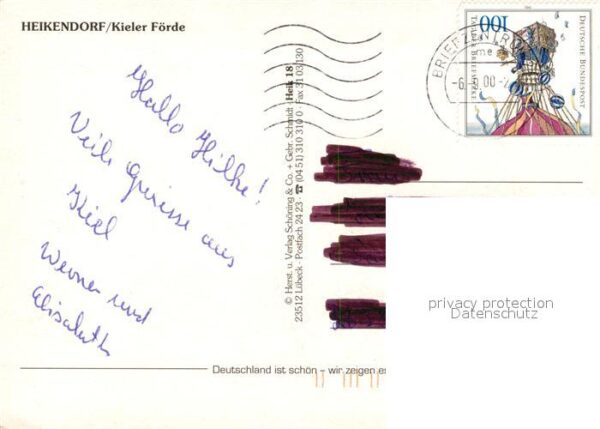 HEIKENDORF/Kieler Förde
Hallo Hilke!
Viele Grüsse aus
Kiel
Werner und
Elisabeth
© Herst. u. Verlag Schöning & Co. + Gebr. Schmidt · Heik 18
23512 Lübeck · Postfach 24 23 · ☎ (04 51) 310 310 0 · Fax 31 03 130
100
DEUTSCHE BUNDESPOST
TAG DER BRIEFMARKE
BRIEFZENTRUM
me
-6.5.00-2
privacy protection
Datenschutz
Deutschland ist schön – wir zeigen es